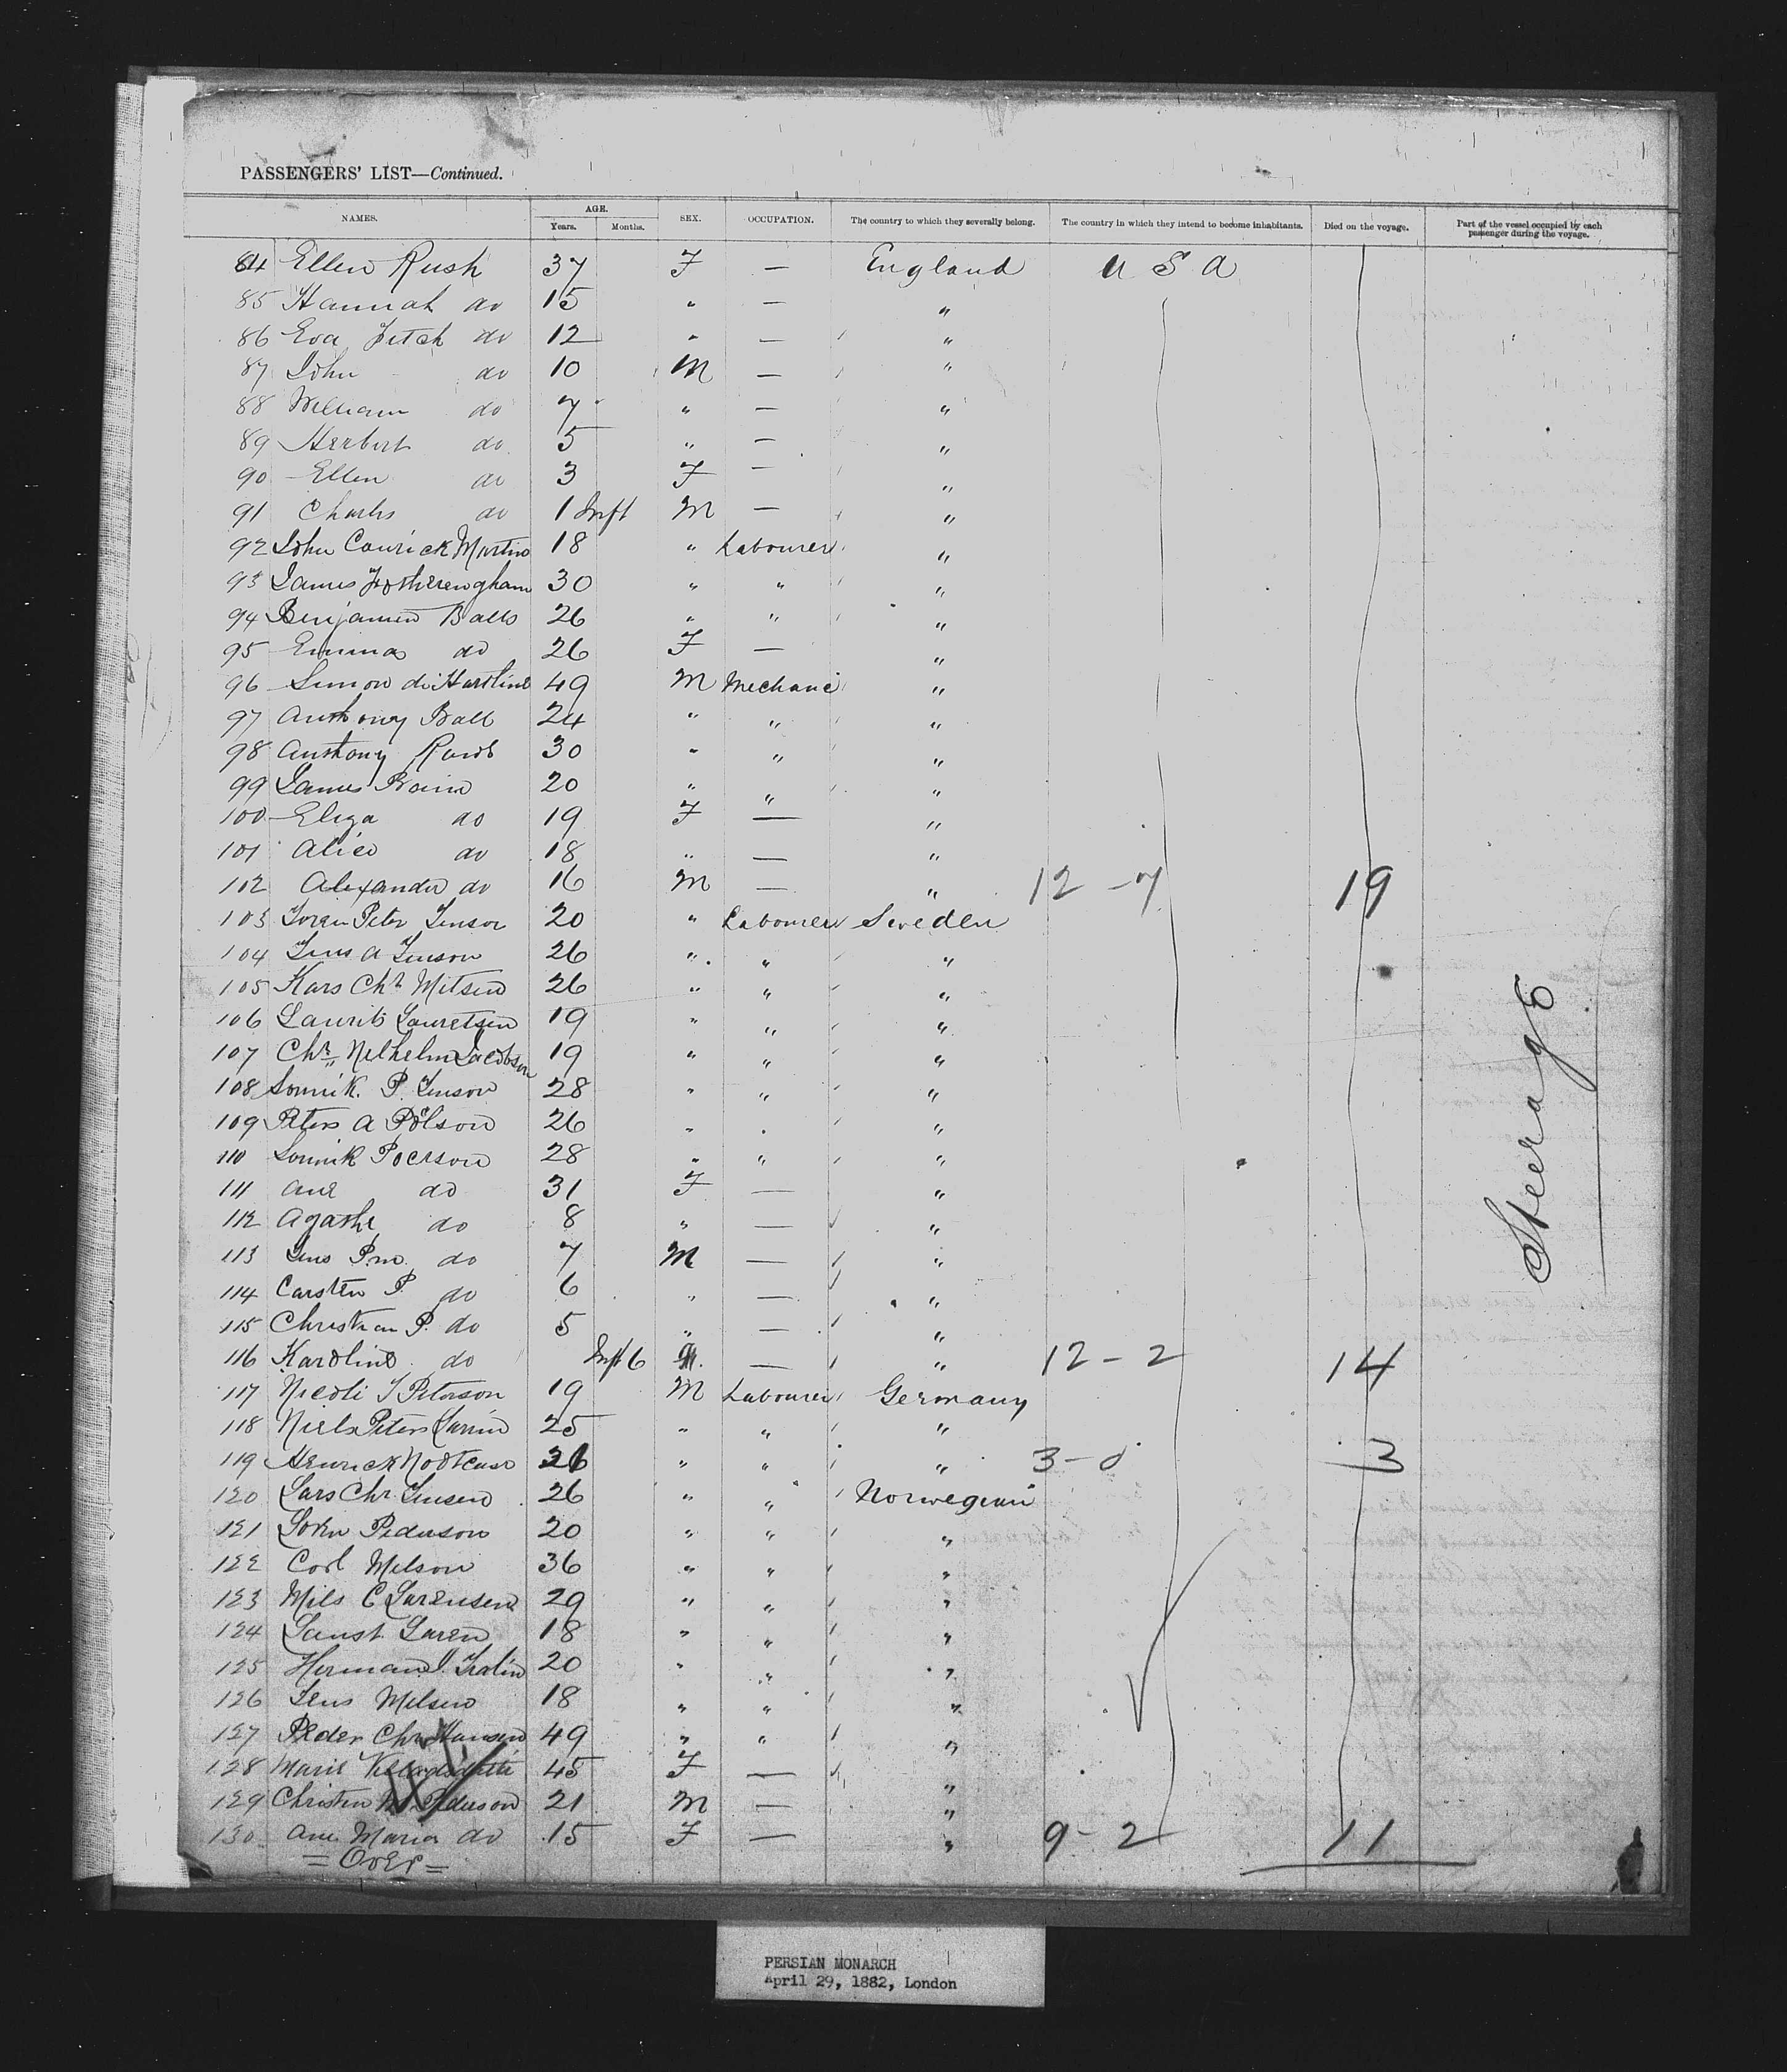 PASSENGERS' LIST—Continued.
NAMES. AGE. Years. Months. SEX. OCCUPATION. The country to which they severally belong. The country in which they intend to become inhabitants. Died on the voyage. Part of the vessel occupied by each passenger during the voyage.
84 Ellen Rush 37 F — England U S A
85 Hannah do 15 " — "
86 Eva Fitch do 12 " — "
87 John do 10 M — "
88 William do 7 " — "
89 Herbert do 5 " — "
90 Ellen do 3 F — "
91 Charles do 1 Inft M — "
92 John Carrick Martin 18 " Labourer "
93 James Fotherengham 30 " " "
94 Benjamin Balls 26 " " "
95 Emma do 26 F — "
96 Simon 49 M Mechanic "
97 Anthony Ball 24 " " "
98 Anthony 30 " " "
99 James 20 " " "
100 Eliza do 19 F — "
101 Alice do 18 " — "
102 Alexander do 16 M — " 12 - 7 19
103 Peter Jenson 20 " Labourer Sweden
104 Jens A Jenson 26 " " "
105 Kars Chr Mitsen 26 " " "
106 Laurits Lauretsen 19 " " "
107 Chr. Nilhelm Jacobson 19 " " "
108 Sonnik. P. Jenson 28 " " "
109 Peters A Polson 26 " . "
110 Sonnik Poerson 28 " " "
111 Ane do 31 F — "
112 Agathe do 8 " — "
113 Jens P.m. do 7 M — "
114 Carsten P. do 6 " — "
115 Christian P. do 5 " — "
116 Karoline do Inft 6 — " 12 - 2 14
117 Nicoli J Peterson 19 M Labourer Germany
118 Niels Peters 25 " " "
119 Henrick 26 " " " 3 - 0 3
120 Lars Chr Jensen 26 " " Norwegian
121 Pederson 20 " " "
122 Carl Melson 36 " " "
123 Mils C Sorensen 29 " " "
124 Laust Laren 18 " " "
125 Herman 20 " " "
126 Jens Milsen 18 " " "
127 Peder Chr Hansen 49 " " "
128 Marie 45 F — "
129 Christen Pederson 21 M — "
130 Ane Maria do 15 F — " 9 - 2 11
= Over =
Steerage
PERSIAN MONARCH
April 29, 1882, London